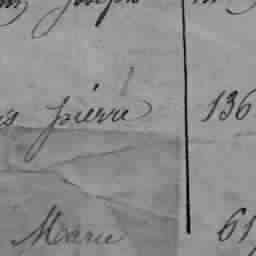 Joseph
Pierre 136
Marie 61